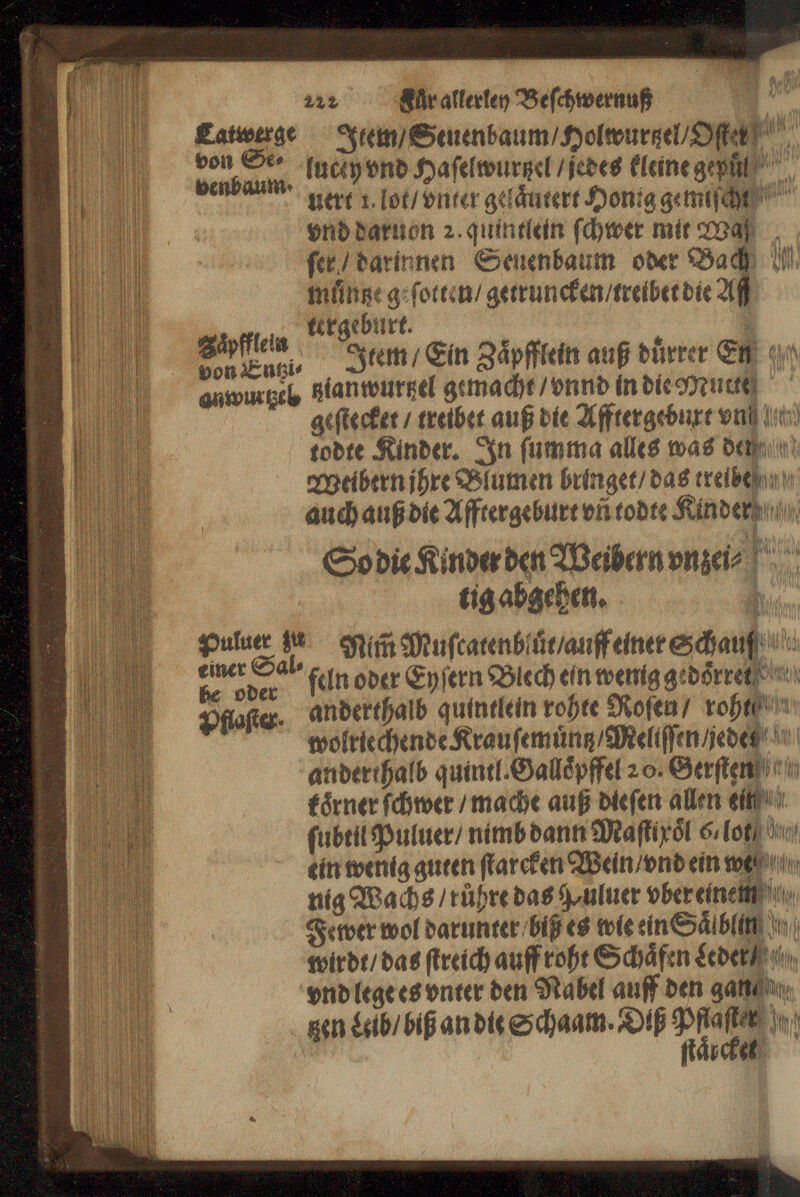 222 Für allerley Beschwernuß
Latwerge
von Se-
venbaum.
Item/Seuenbaum/Holwurtzel/Oster
lucey vnd Haselwurtzel / jedes kleine gepül
uert 1. lot/ vnter geläutert Honig gemischt
vnd daruon 2. quintlein schwer mit Was
ser / darinnen Seuenbaum oder Bach
müntze gesotten/ getruncken/treibet die Aff
tergeburt.
Zäpfflein
von Entzi-
anwurtzel.
Item / Ein Zäpfflein auß dürrer En
tzianwurtzel gemacht / vnnd in die Mutte
gestecket / treibet auß die Afftergeburt vnd
todte Kinder. In summa alles was den
Weibern jhre Blumen bringet/ das treibe
auch auß die Afftergeburt vñ todte Kinder.
So die Kinder den Weibern vnzei-
tig abgehen.
Puluer zu
einer Sal-
be oder
Pflaster.
Nim̃ Muscatenblüt/auff einer Schauf
feln oder Eysern Blech ein wenig gedörret
anderthalb quintlein rohte Rosen / rohte
wolriechende Krausemüntz/Melissen/jedes
anderthalb quintl. Gallöpffel 20. Gersten
körner schwer / mache auß diesen allen ein
subtil Puluer/ nimb dann Mastixöl 6. lot/
ein wenig guten starcken Wein/vnd ein we
nig Wachs / rühre das Puluer vber einem
Fewer wol darunter/biß es wie ein Säiblin
wirdt/ das streich auff roht Schäfen Leder/
vnd lege es vnter den Nabel auff den gan
tzen Leib/ biß an die Schaam. Diß Pflaster
stärcket